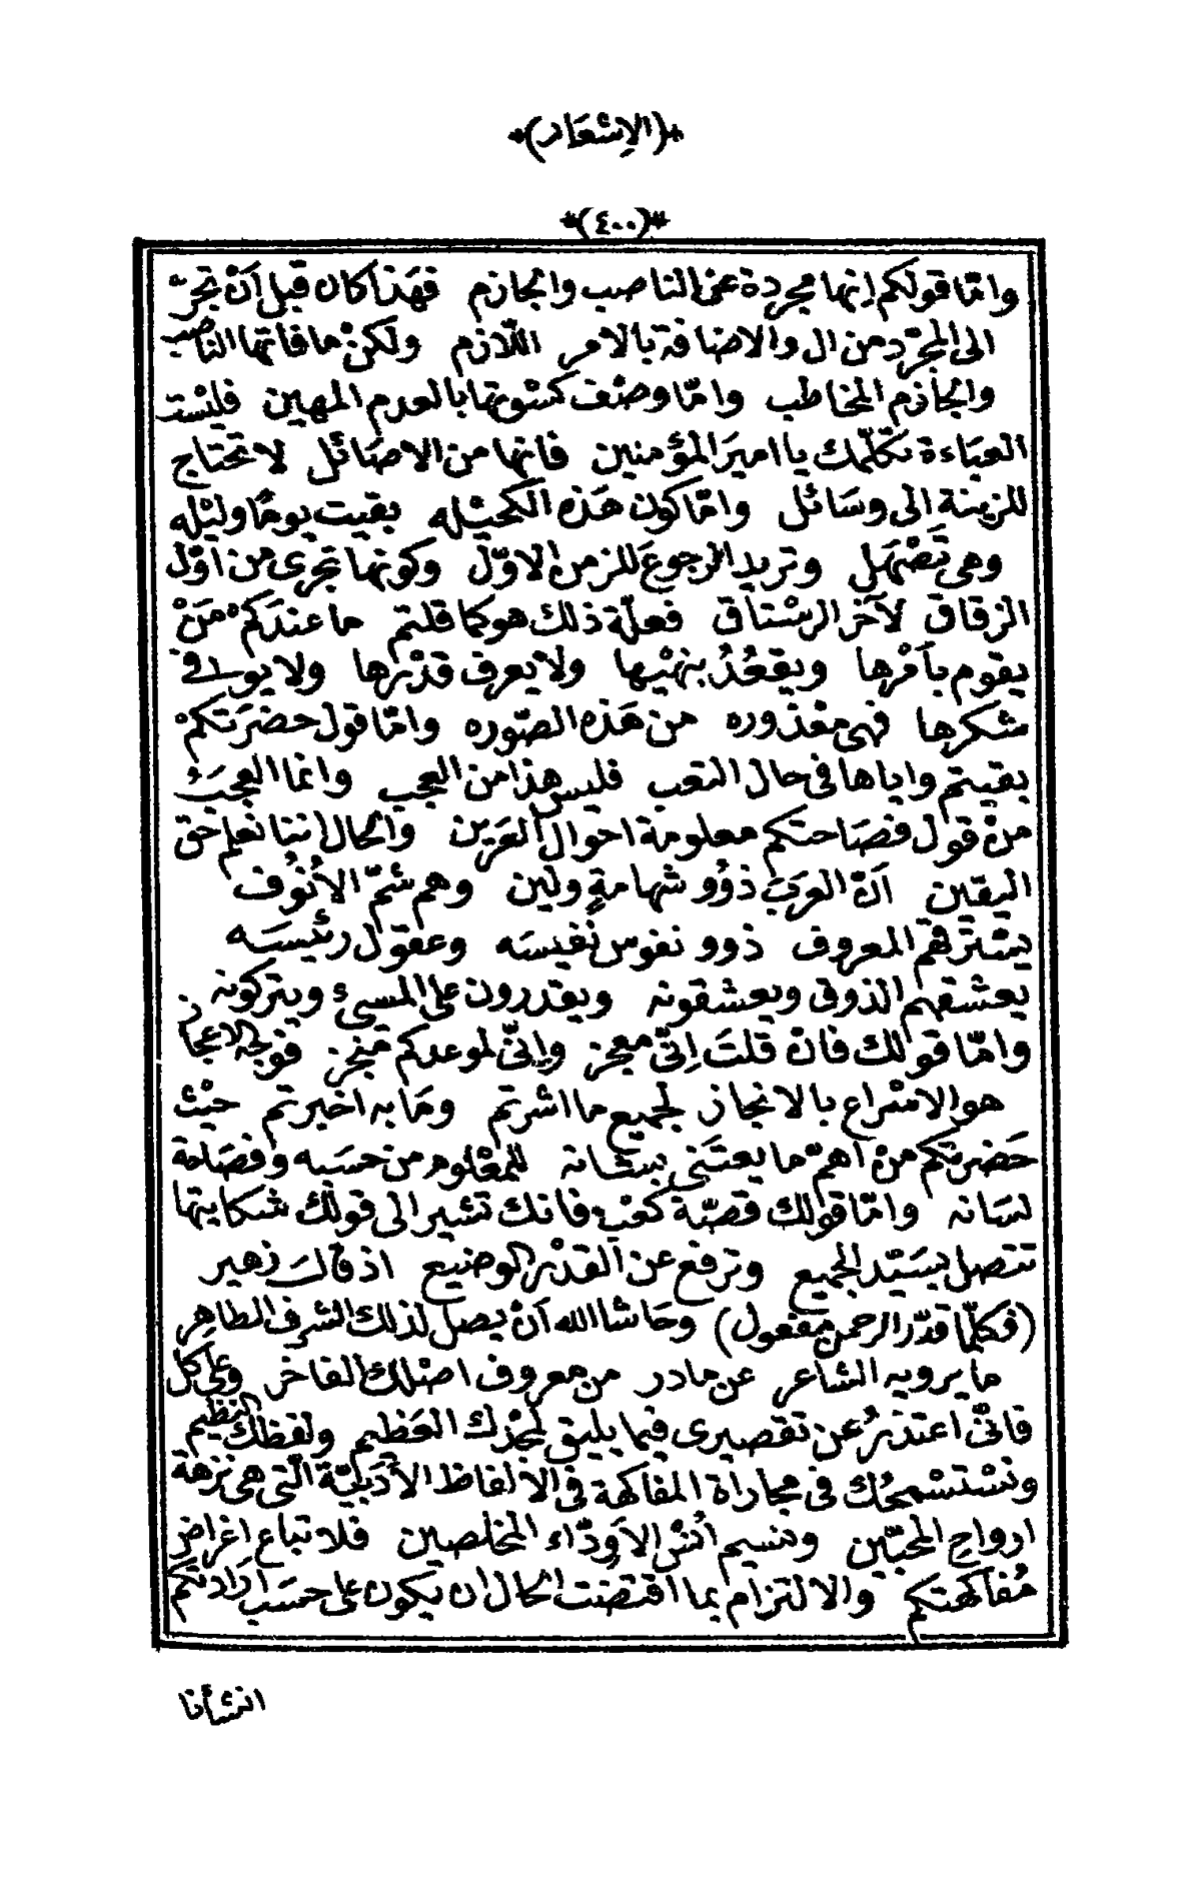 *(الإشعار)*
*(٤٠٠)*
وامّا قولكم إنها مجردة عن الناصب والجازم فهذا كان قبل أنْ تجرّ
الى المجرّد من ال والاضافة بالامر اللّازم ولكنْ ما فاتها الناصب
والجازم المخاطب وامّا وصْف كسْوتها بالعدم المهين فليْست
العبَاءة تكلّمك يا اميرَ المؤمنين فانها من الاصَائل لا تحتاج
للزينة الى وسَائل وامّا كون هَذه الكحيْله بقيت يومًا وليْله
وهى تَصْهَل وتريد الرجوعَ للزمن الاوّل وكونها تجرى من أوّل
الزقاق لآخر الرسْتاق فعلّة ذلك هو كما قلتم ما عندَكمْ مَنْ
يقوم بأمْرها ويقعُدُ بنهْيها ولا يعرف قدْرها ولا يوفى
شكرها فهى معْذوره من هَذه الصّوره وامّا قول حضرَتكمْ
بقيتم واياها فى حال التعب فليس هذا من العجب وانما العجبُ
منْ قول فصَاحتكم معلومة احوال العَربين والحال اننا نعلم حَق
اليقين أنّ العرَبَ ذوُو شهامةٍ ولين وهم شمّ الأنُوف
يسْترقهم المعروف ذوو نفوس نفيسَه وعقول رئيسَه
يعشقهم الذوق ويعشقونه ويقدرون على المسىء ويتركونه
وامّا قولك فانْ قلتَ إنّى معجز وإنّى لموعدكم منجز فوجه الاعجاز
هو الاسْراع بالانجاز لجميع ما اشرتم ومَا به اخبرتم حيْث
حَضرتكم منْ أهمّ ما يعتَنى بشانه للمعْلوم من حسَبه وفصَاحة
لسَانه وامّا قولك قصّة كعْب فانك تشير الى قولك شكايتها
تتصل بسَيّد الجميع وترفع عن القدْر الوضيع اذ قالَ زهير
(فكلّما قدّر الرحمن مفعول) وحَاشا الله أنْ يصل لذلك الشرف الطاهر
ما يرويه الشاعر عن مادر من معروف اصْلك الفاخر وعلى كل
فانّى اعتذرُ عن تقصيرى فيما يليق لمجْدك العَظيم ولفظك النظيم
ونسْتسْمحُك فى مجاراة المفاكهة فى الالفاظ الأدَبيّة الّتى هى نزهة
ارواحِ المحبّين ونسيم أنْسْ الأودّاء المخلصين فلا تباع اغراض
مُفاكهتكم والالتزام بما اقتضت الحال ان يكون على حسَب ارادتكم
انشأنا